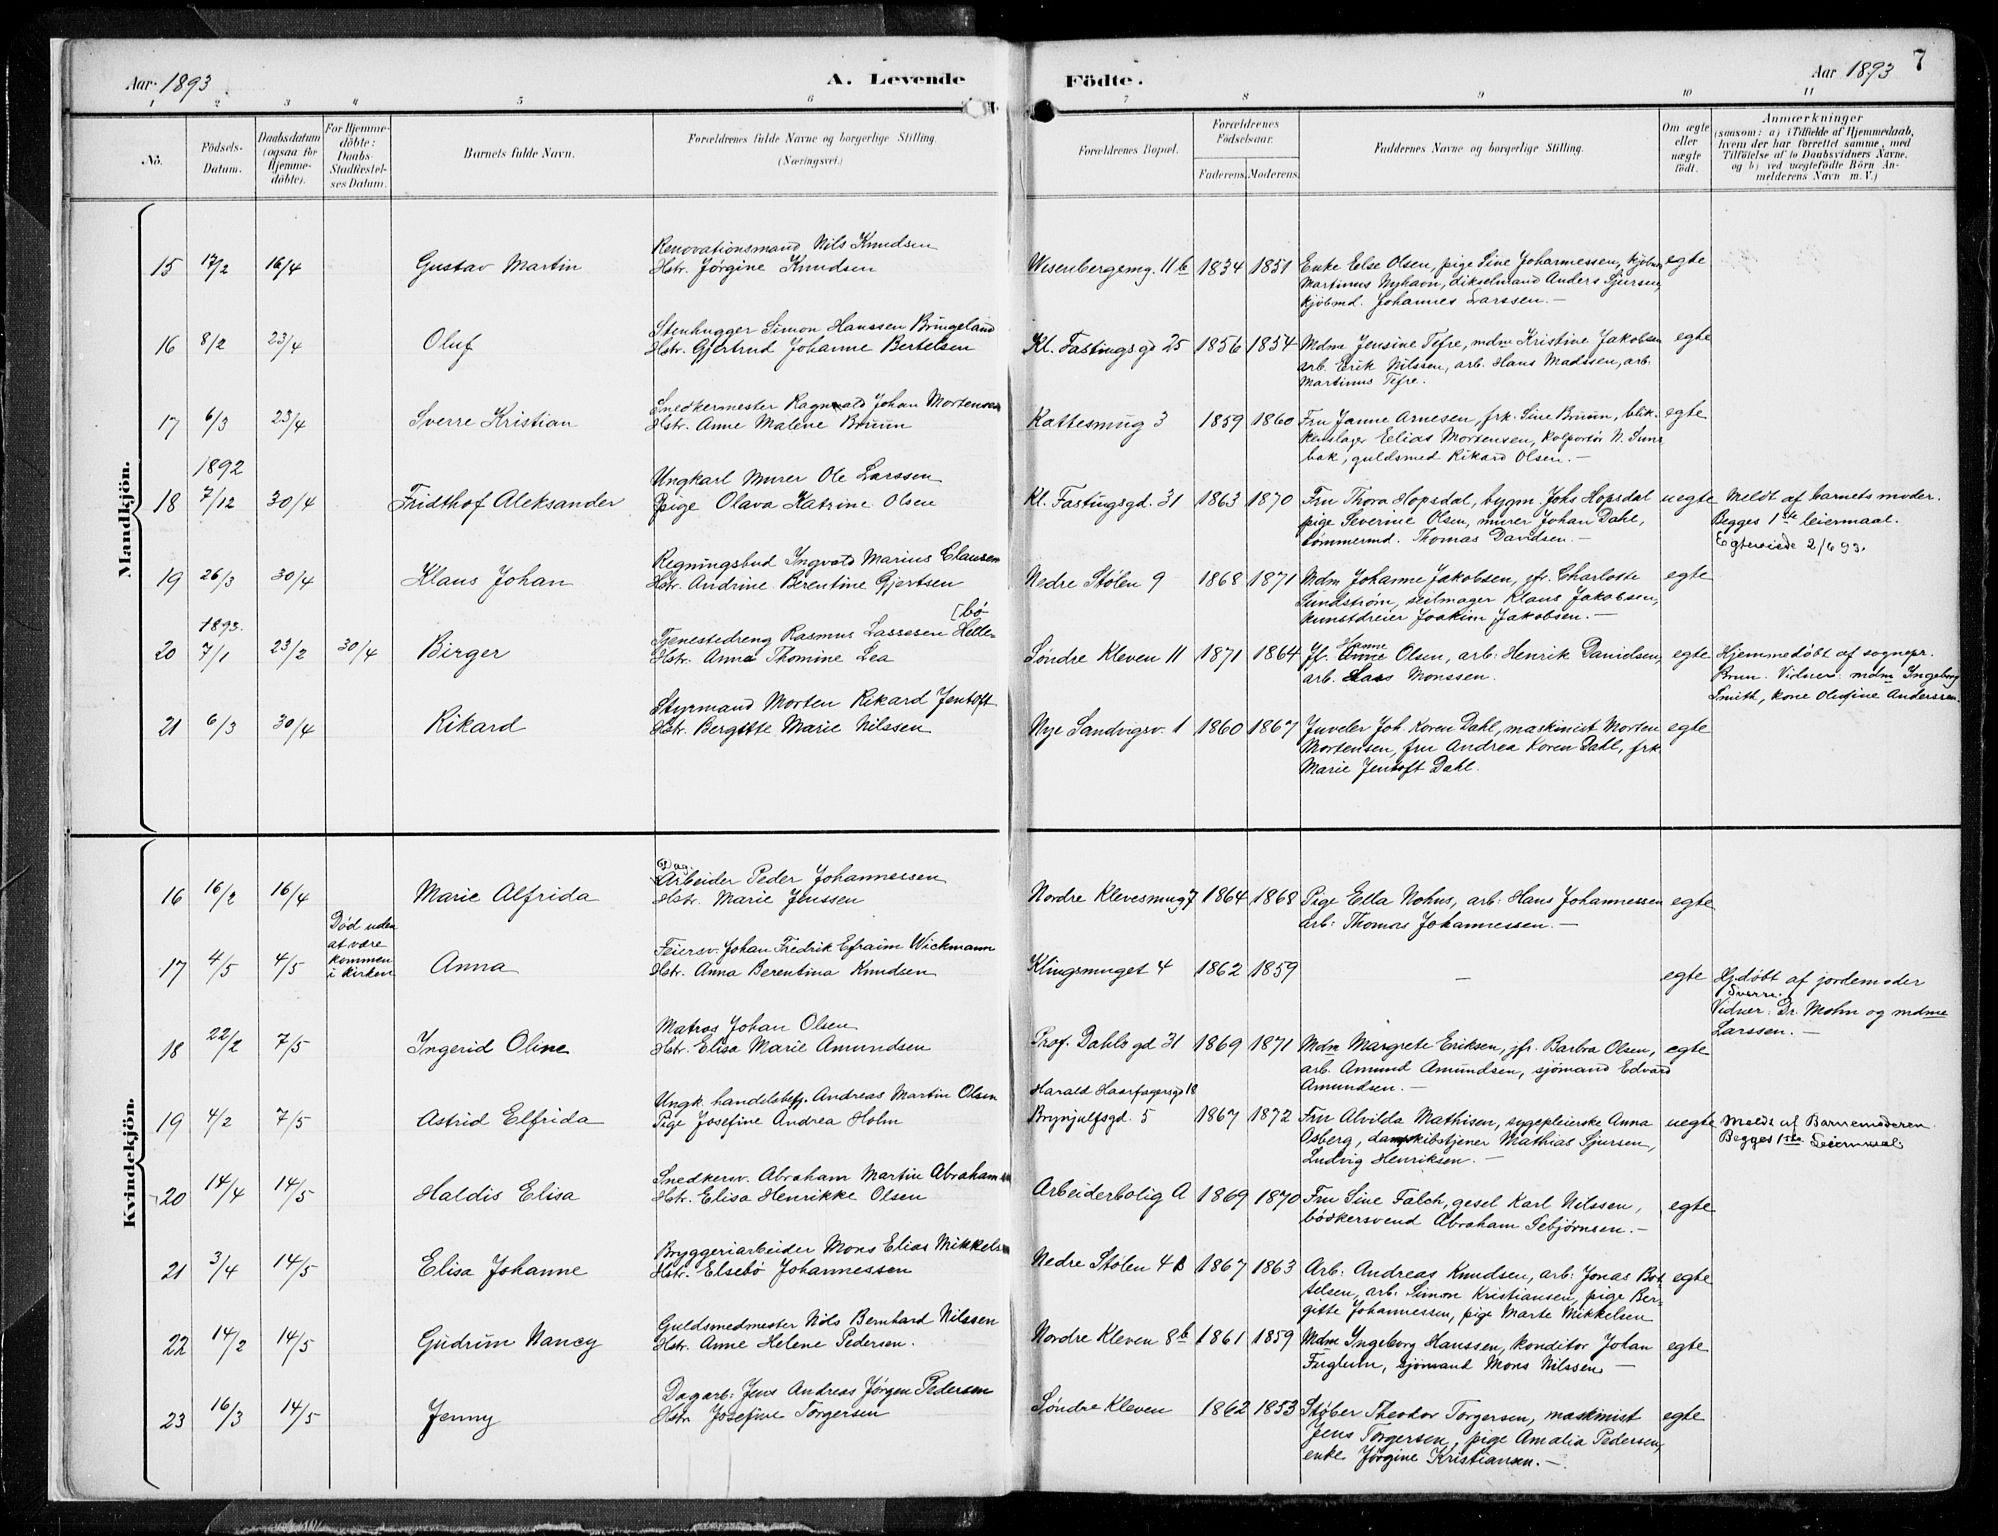 Aar 1893 A. Levende Födte. Aar 1893 7
1 2 3 4 5 6 7 8 9 10 11
No.
Födsels-
Datum.
Daabsdatum
(ogsaa for
Hjemme-
döbte).
For Hjemme-
döbte:
Daabs-
Stadfæstel-
ses Datum.
Barnets fulde Navn.
Forældrenes fulde Navne og borgerlige Stilling.
(Næringsvei.)
Forældrenes Bopæl.
Forældrenes
Födselsaar.
Faderens. Moderens.
Faddernes Navne og borgerlige Stilling.
Om ægte
eller
uægte
födt.
Anmærkninger
(saasom: a) i Tilfælde af Hjemmedaab,
hvem der har forrettet samme, med
Tilföielse af to Daabsvidners Navne,
og b) ved uægtefödte Börn An-
melderens Navn m. V.)
Mandkjön.
Renovationsmand Nils Knudsen
15 17/2 16/4 Gustav Martin Hstr. Jørgine Knudsen Wesenbergsmg. 11b 1834 1851 Enke Else Olsen, pige Sine Johannessen, kjøbm egte
Martinus Nyhavn, dikselmand Anders Sjursen,
kjøbmd. Johannes Larssen. —
Stenhugger Simon Hanssen Bringeland
16 8/2 23/4 Oluf Hstr. Gjertrud Johanne Bertelsen Kl. Fastingsgd 25 1856 1854 Mdm Jensine Tefre, mdm Kristine Jakobsen egte
arb. Erik Nilssen, arb. Hans Madssen, arb.
Martinus Tefre.
Snedkermester Ragnvald Johan Mortensen
17 6/3 23/4 Sverre Kristian Hstr. Anne Malene Bruun Kattesmug 3 1859 1860 Fru Janne Arnesen, frk. Sine Bruun, blik- egte
kenslager Elias Mortensen, kolportør N. Suns
bak, guldsmed Rikard Olsen. —
1892
Ungkarl Murer Ole Larssen
18 7/12 30/4 Fridthof Aleksander Pige Olava Katrine Olsen Kl. Fastingsgd. 31 1863 1870 Fru Thora Hopsdal, bygm. Johs Hopsdal uegte Meldt af barnets moder.
pige Severine Olsen, murer Johan Dahl, Begges 1ste leiermaal.
tømmermd. Thomas Davidsen. — Egteviede 2/6 93.
Regningsbud Ingvald Marius Clausen
19 26/3 30/4 Klaus Johan Hstr. Andrine Berentine Gjertsen Nedre Stølen 9 1868 1871 Mdm Johanne Jakobsen, jfr. Charlotte egte
Sundstrøm, seilmager Klaus Jakobsen,
kunstdreier Joakim Jakobsen. —
[bø
1893.
Tjenestedreng Rasmus Lassesen Helle-
20 7/1 23/2 30/4 Birger Hstr. Anna Thomine Lea Søndre Kleven 11 1871 1864 Jf. Hanne Olsen, arb. Henrik Danielsen, egte Hjemmedøbt af sognepr.
arb. Lars Monssen. Brun. Vidner: mdm Ingeborg
Smith, kone Olufine Anderssen.
Styrmand Morten Rikard Jentoft
21 6/3 30/4 Rikard Hstr. Bergitte Marie Nilssen Nye Sandvigsv. 1 1860 1867 Juveler Joh. Koren Dahl, maskinist Morten egte
Mortensen, fru Andrea Koren Dahl, frk.
Marie Jentoft Dahl.
Kvindekjön.
Dag.
Arbeider Peder Johannessen
16 16/2 16/4 Marie Alfrida Hstr. Marie Jenssen Nordre Klevesmug 7 1864 1868 Pige Ella Nohus, arb. Hans Johannessen egte
arb: Thomas Johannessen. —
Død uden
at være
kommen
i kirken
Feiersv. Johan Fredrik Efraim Wickmann
17 4/5 4/5 Anna Hstr. Anna Berentina Knudsen Klingsmuget 4 1862 1859 — egte Hjdøbt af jordemoder
Sverre.
Vidner: Dr. Mohn og mdme
Larssen. —
Matros Johan Olsen
18 22/2 7/5 Ingerid Oline Hstr. Elisa Marie Amundsen Prof. Dahls gd 31 1869 1871 Mdm Margrete Eriksen, jfr. Barbra Olsen, egte
arb. Amund Amundsen, sjømand Edvard
Amundsen. —
Harald Haarfagersgd 18
Ungk. handelsbefj. Andreas Martin Olsen
19 4/2 7/5 Astrid Elfrida Pige Josefine Andrea Holm Brynjulfsgd. 5 1867 1872 Fru Alvilda Mathisen, sygepleierske Anna uegte Meldt af Barnemoderen.
Osberg, dampskibstjener Mathias Sjursen, Begges 1ste Leiermaal.
Ludvig Henriksen. —
Snedkersv. Abraham Martin Abrahamsen
20 14/4 14/5 Haldis Elisa Hstr. Elisa Henrikke Olsen Arbeiderbolig A 1869 1870 Fru Sine Falch, gesel Karl Nilssen, egte
bødkersvend Abraham Sebjørnsen. —
Bryggeriarbeider Mons Elias Mikkelsen
21 3/4 14/5 Elisa Johanne Hstr. Elsebø Johannessen Nedre Stølen 4B 1867 1863 Arb: Andreas Knudsen, arb: Jonas Bot- egte
telsen, arb. Simon Kristiansen, pige Ber-
gitte Johannessen, pige Marte Mikkelsen
Guldsmedmester Nils Bernhard Nilssen
22 14/2 14/5 Gudrun Nancy Hstr. Anne Helene Pedersen. Nordre Kleven 8b 1861 1859 Mdm Ingeborg Hanssen, konditor Johan egte
Fuglum, sjømand Mons Nilssen —
Dagarb: Jens Andreas Jørgen Pedersen
23 16/3 14/5 Jenny Hstr Josefine Torgersen Søndre Kleven 1862 1853 Støber Theodor Torgersen, maskinist egte
Jens Torgersen, pige Amalia Pedersen,
enke Jørgine Kristiansen. —